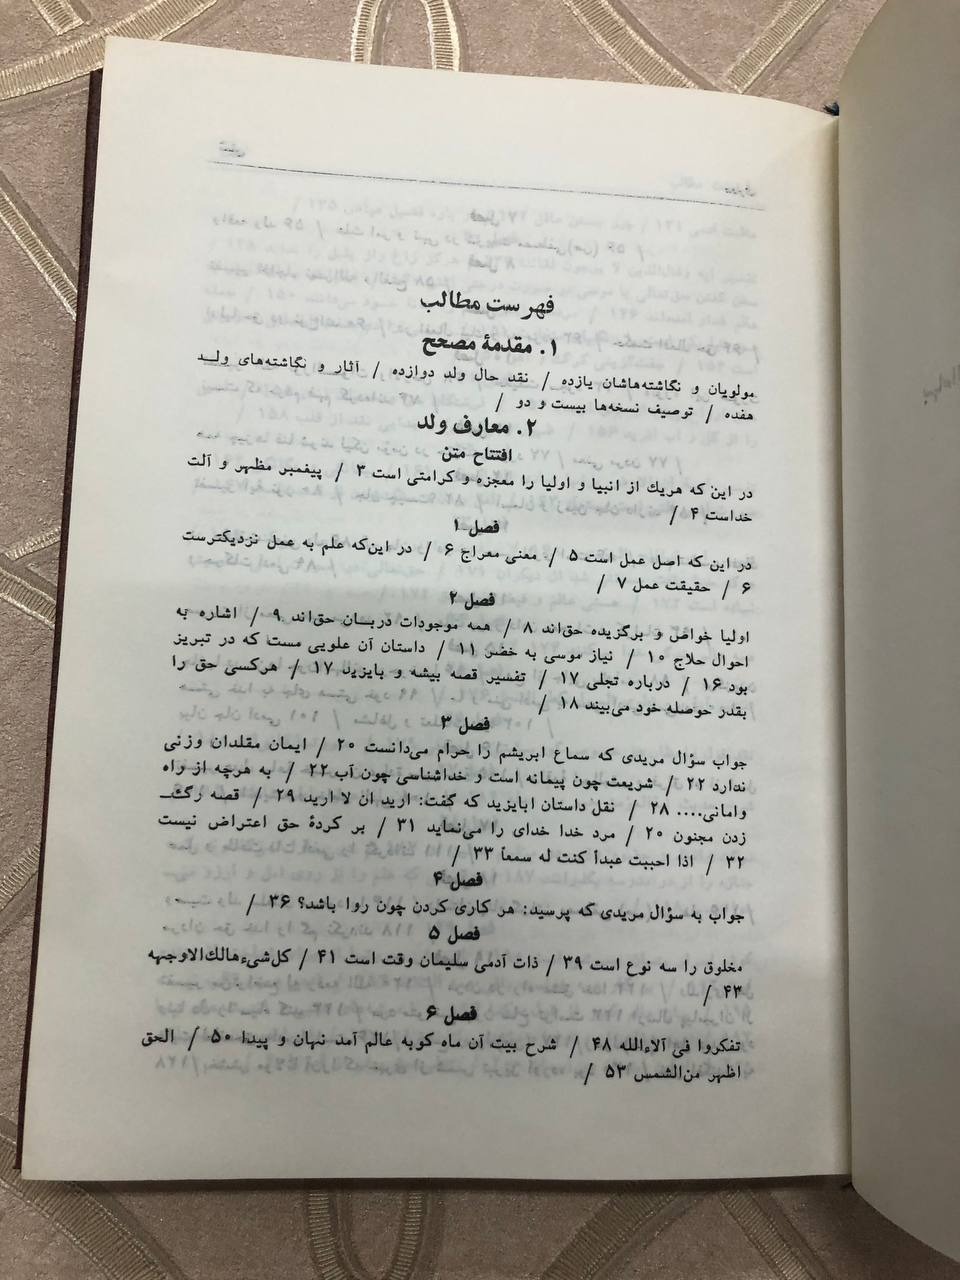 فهرست مطالب
۱. مقدمهٔ مصحح
مولویان و نگاشته‌هاشان یازده / نقد حال ولد دوازده / آثار و نگاشته‌های ولد
هفده / توصیف نسخه‌ها بیست و دو /
۲. معارف ولد
افتتاح متن
در این که هریك از انبیا و اولیا را معجزه و کرامتی است ۳ / پیغمبر مظهر و آلت
خداست ۴ /
فصل ۱
در این که اصل عمل است ۵ / معنی معراج ۶ / در این‌که علم به عمل نزدیکترست
۶ / حقیقت عمل ۷ /
فصل ۲
اولیا خواص و برگزیده حق‌اند ۸ / همه موجودات دربان حق‌اند ۹ / اشاره به
احوال حلاج ۱۰ / نیاز موسی به خضر ۱۱ / داستان آن علویی مست که در تبریز
بود ۱۶ / درباره تجلی ۱۷ / تفسیر قصه بیشه و بایزید ۱۷ / هرکسی حق را
بقدر حوصله خود می‌بیند ۱۸ /
فصل ۳
جواب سؤال مریدی که سماع ابریشم را حرام می‌دانست ۲۰ / ایمان مقلدان وزنی
ندارد ۲۲ / شریعت چون پیمانه است و خداشناسی چون آب ۲۲ / به هرچه از راه
وامانی.... ۲۸ / نقل داستان ابایزید که گفت: ارید ان لا ارید ۲۹ / قصه رگ
زدن مجنون ۲۰ / مرد خدا خدای را می‌نماید ۳۱ / بر کردهٔ حق اعتراض نیست
۳۲ / اذا احببت عبداً کنت له سمعاً ۳۳ /
فصل ۴
جواب به سؤال مریدی که پرسید: هر کاری کردن چون روا باشد؟ ۳۶ /
فصل ۵
مخلوق را سه نوع است ۳۹ / ذات آدمی سلیمان وقت است ۴۱ / کل‌شیء‌هالك‌الاوجهه
۴۳ /
فصل ۶
تفکروا فی آلاءالله ۴۸ / شرح بیت آن ماه کوبه عالم آمد نهان و پیدا ۵۰ / الحق
اظهر من‌الشمس ۵۳ /